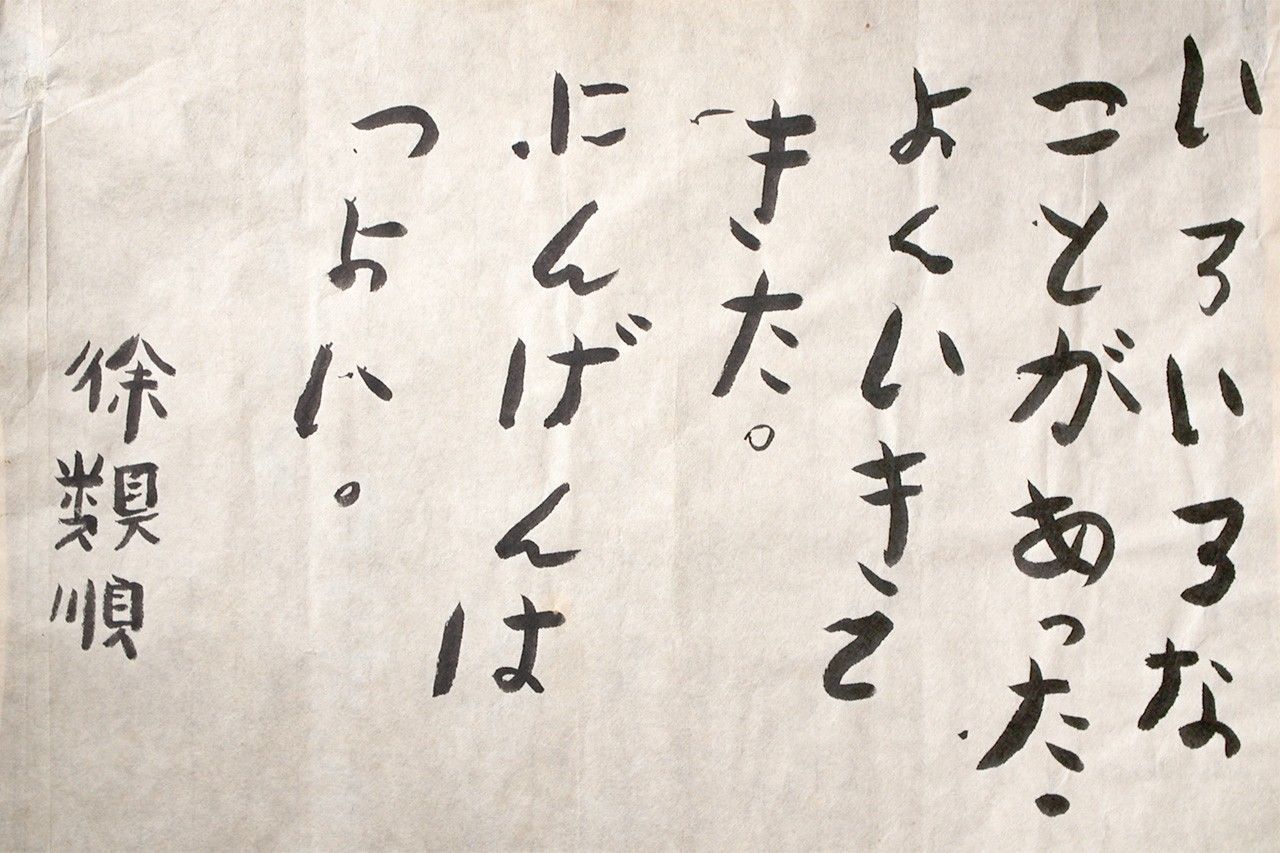 いろいろな
ことがあった
よくいきて
きた。
にんげんは
つよい。
徐類順